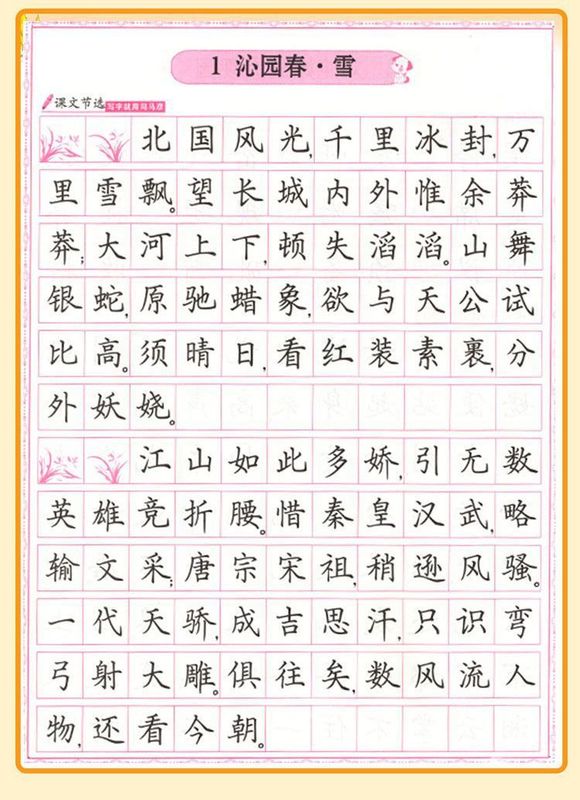 1 沁园春·雪
课文节选 写字就用司马彦
北国风光,千里冰封,万
里雪飘。望长城内外惟余莽
莽;大河上下,顿失滔滔。山舞
银蛇,原驰蜡象,欲与天公试
比高。须晴日,看红装素裹,分
外妖娆。
江山如此多娇,引无数
英雄竞折腰。惜秦皇汉武,略
输文采;唐宗宋祖,稍逊风骚。
一代天骄,成吉思汗,只识弯
弓射大雕。俱往矣,数风流人
物,还看今朝。